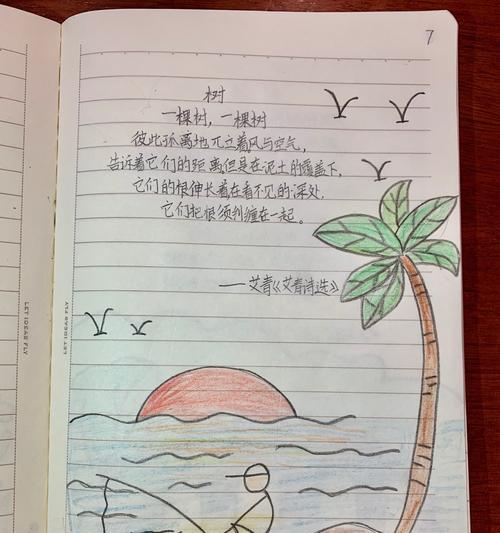 7
树
一棵树，一棵树
彼此孤离地兀立着风与空气，
告诉着它们的距离但是在泥土的覆盖下，
它们的根伸长着在看不见的深处，
它们把根须纠缠在一起。
——艾青《艾青诗选》
LET IDEAS FLY
LET IDEAS FLY